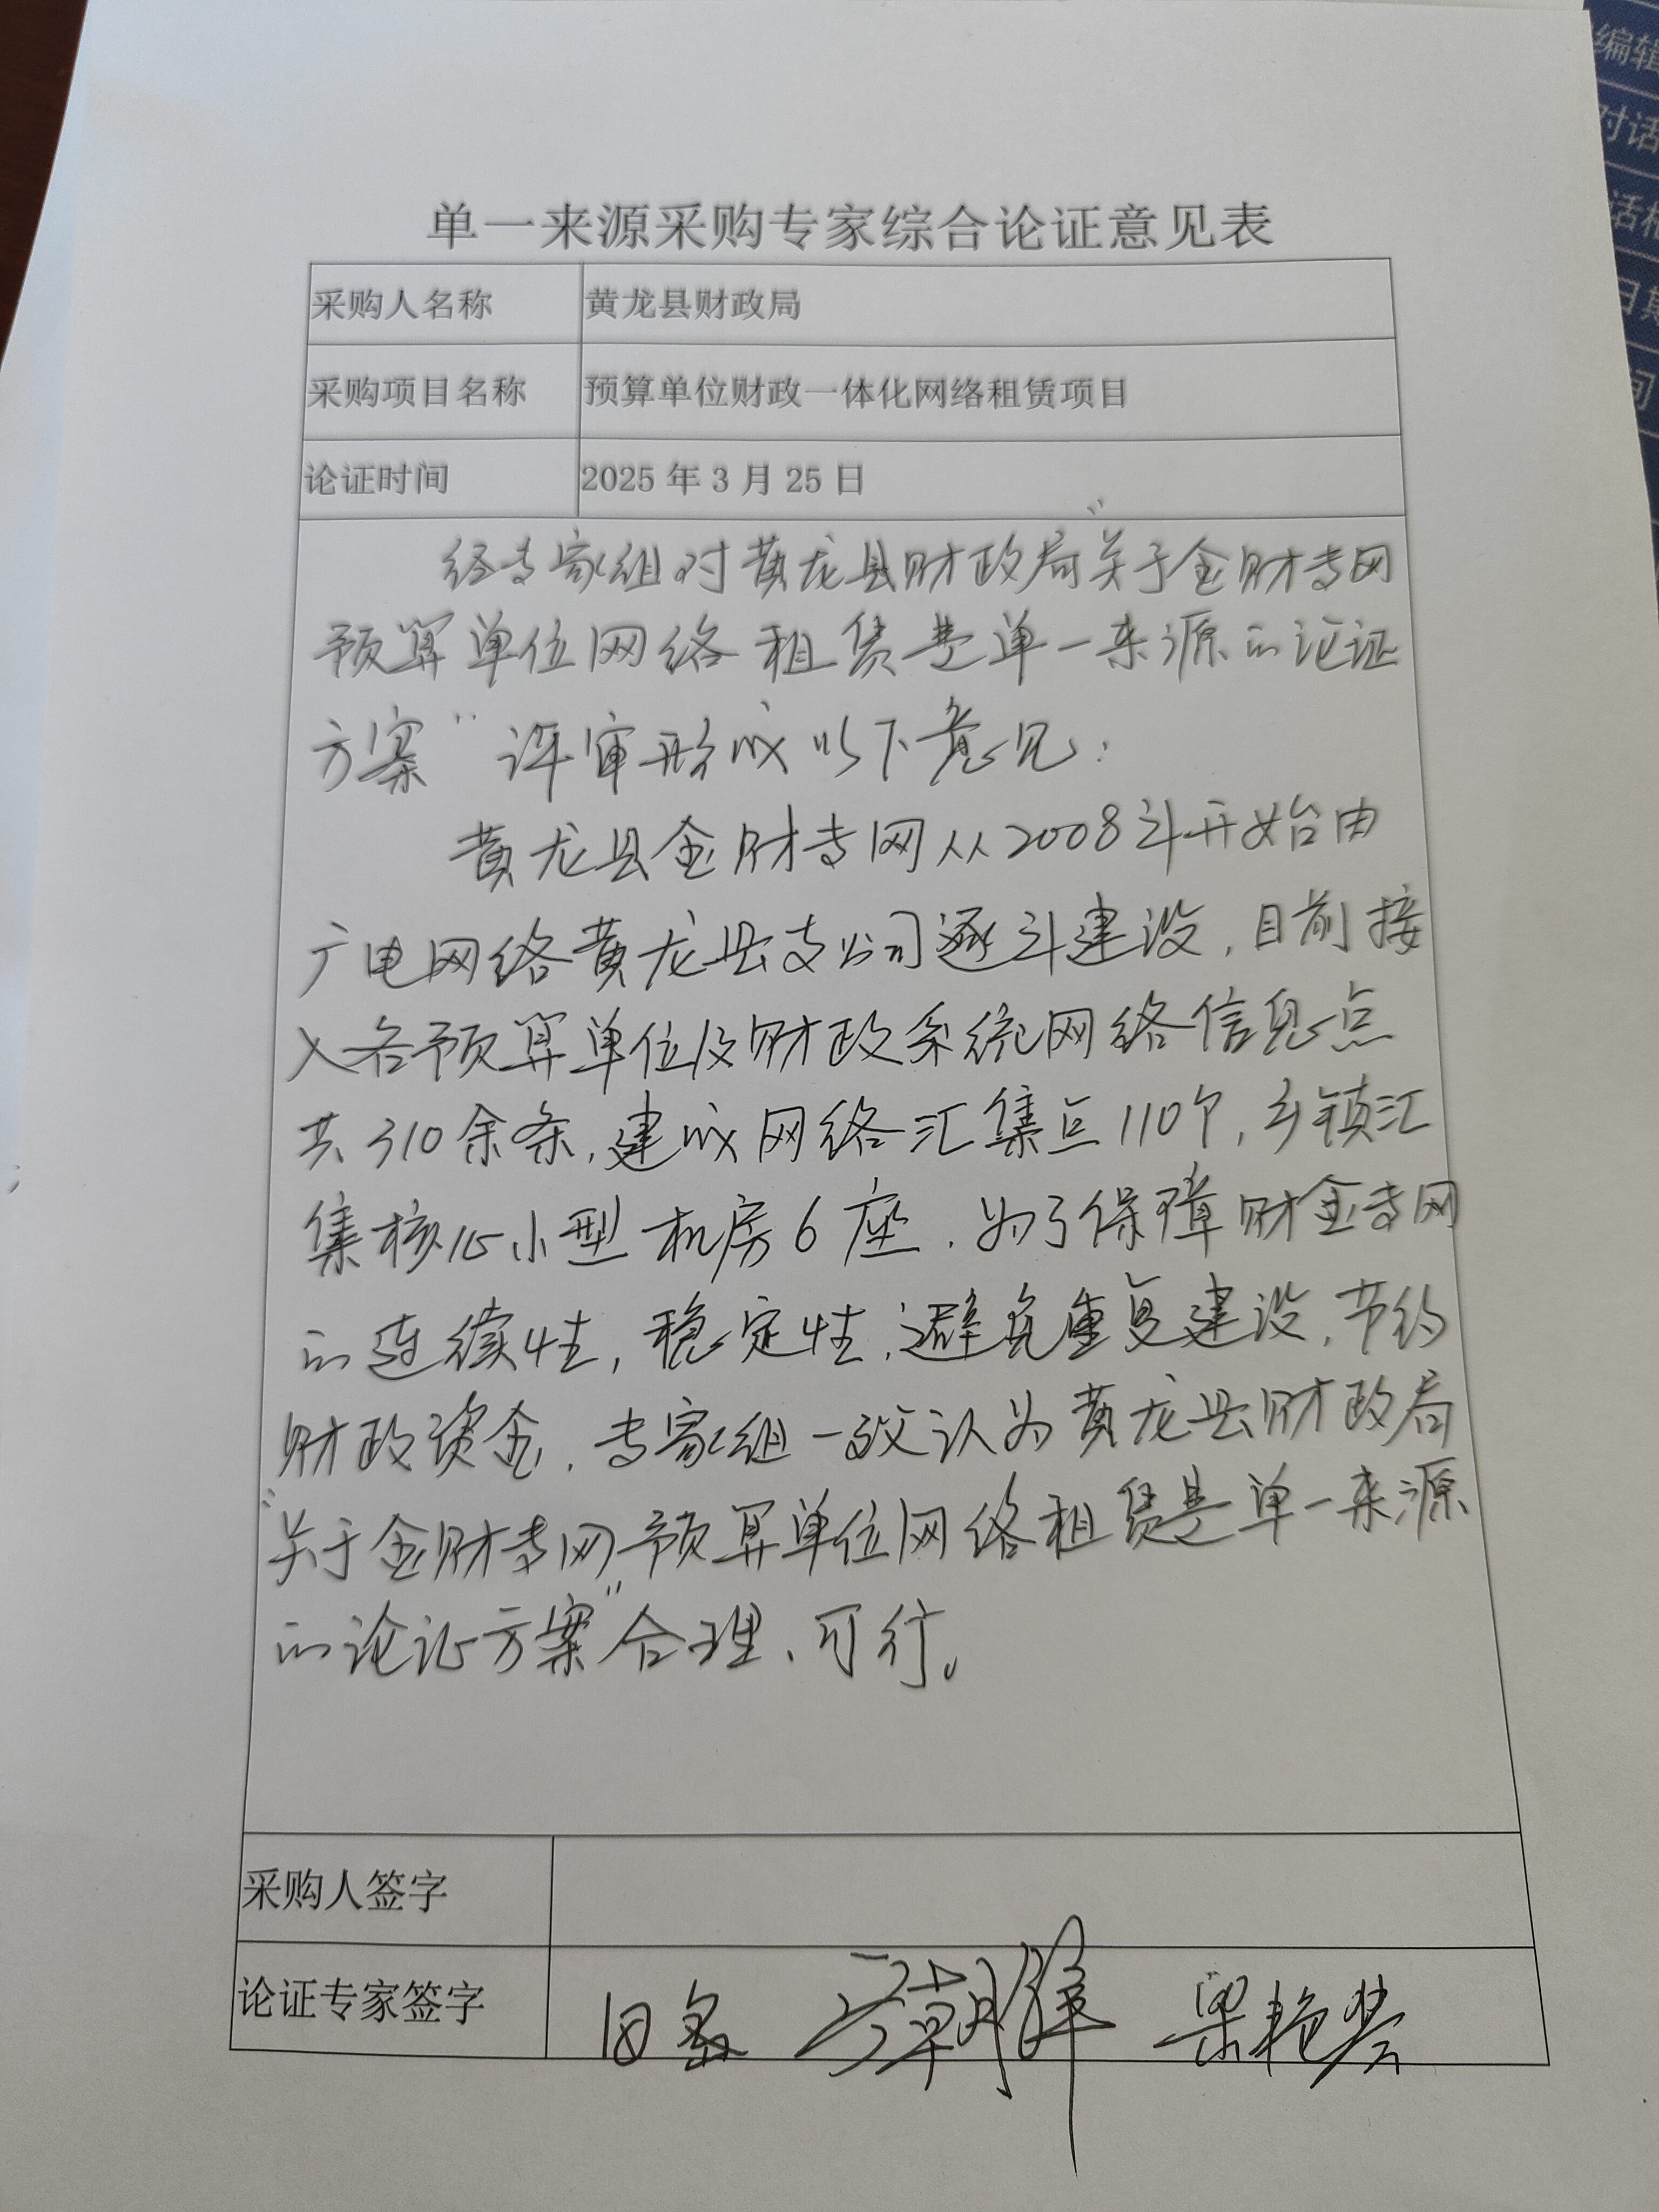 单一来源采购专家综合论证意见表
采购人名称 黄龙县财政局
采购项目名称 预算单位财政一体化网络租赁项目
论证时间 2025年3月25日
经专家组对黄龙县财政局“关于金财专网
预算单位网络租赁是单一来源的论证
方案”评审形成以下意见：
黄龙县金财专网从2008年开始由
广电网络黄龙县支公司逐年建设，目前接
入各预算单位及财政系统网络信息点
共310余条，建成网络汇集点110个，乡镇汇
集核心小型机房6座，为了保障财金专网
的连续性，稳定性，避免重复建设，节约
财政资金，专家组一致认为黄龙县财政局
“关于金财专网预算单位网络租赁是单一来源
的论证方案”合理、可行。
采购人签字
论证专家签字
编辑
对话
日期